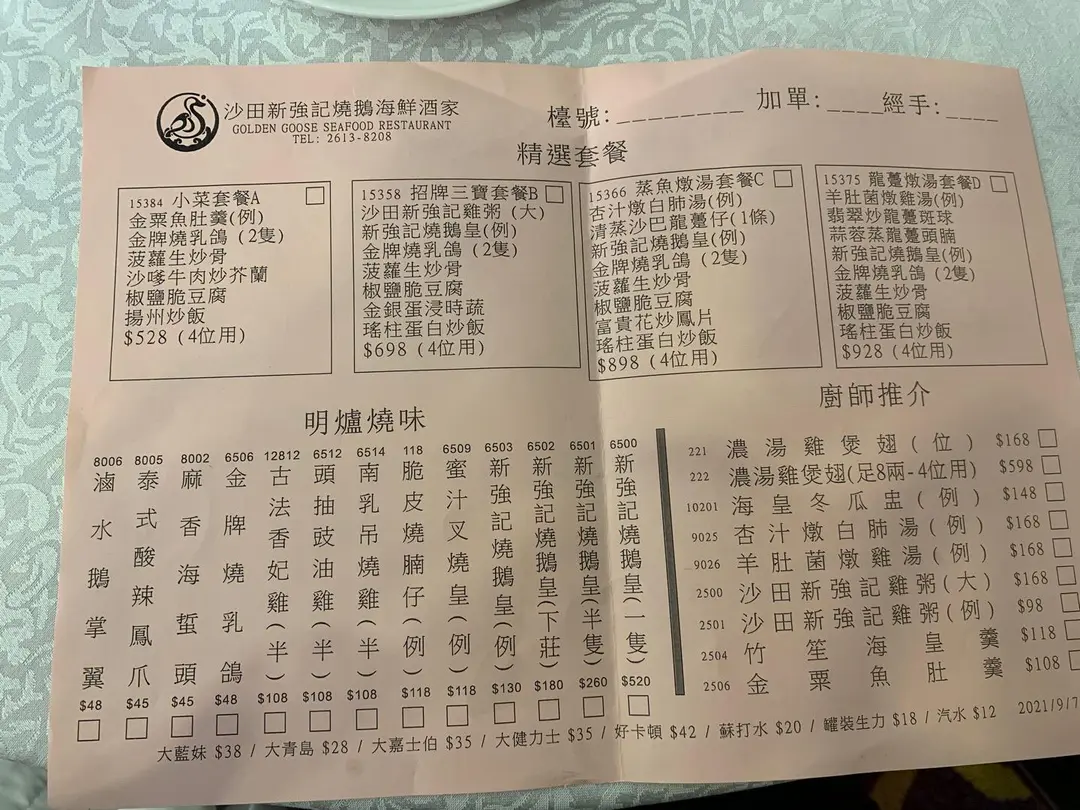 沙田新強記燒鵝海鮮酒家
GOLDEN GOOSE SEAFOOD RESTAURANT
TEL: 2613-8208
檯號:________ 加單:____ 經手:____
精選套餐
15384 小菜套餐A
金粟魚肚羹(例)
金牌燒乳鴿 (2隻)
菠蘿生炒骨
沙嗲牛肉炒芥蘭
椒鹽脆豆腐
揚州炒飯
$528 (4位用)
15358 招牌三寶套餐B
沙田新強記雞粥 (大)
新強記燒鵝皇(例)
金牌燒乳鴿 (2隻)
菠蘿生炒骨
椒鹽脆豆腐
金銀蛋浸時蔬
瑤柱蛋白炒飯
$698 (4位用)
15366 蒸魚燉湯套餐C
杏汁燉白肺湯(例)
清蒸沙巴龍躉仔(1條)
新強記燒鵝皇(例)
金牌燒乳鴿 (2隻)
菠蘿生炒骨
椒鹽脆豆腐
富貴花炒鳳片
瑤柱蛋白炒飯
$898 (4位用)
15375 龍躉燉湯套餐D
羊肚菌燉雞湯(例)
翡翠炒龍躉斑球
蒜蓉蒸龍躉頭腩
新強記燒鵝皇(例)
金牌燒乳鴿 (2隻)
菠蘿生炒骨
椒鹽脆豆腐
瑤柱蛋白炒飯
$928 (4位用)
明爐燒味
8006 滷水鵝掌翼 $48
8005 泰式酸辣鳳爪 $45
8002 麻香海蜇頭 $45
6506 金牌燒乳鴿 $48
12812 古法香妃雞(半) $108
6512 頭抽豉油雞(半) $108
6514 南乳吊燒雞(半) $108
118 脆皮燒腩仔(例) $118
6509 蜜汁叉燒皇(例) $118
6503 新強記燒鵝皇(例) $130
6502 新強記燒鵝皇(下莊) $180
6501 新強記燒鵝皇(半隻) $260
6500 新強記燒鵝皇(一隻) $520
廚師推介
221 濃湯雞煲翅(位) $168
222 濃湯雞煲翅(足8兩-4位用) $598
10201 海皇冬瓜盅(例) $148
9025 杏汁燉白肺湯(例) $168
9026 羊肚菌燉雞湯(例) $168
2500 沙田新強記雞粥(大) $168
2501 沙田新強記雞粥(例) $98
2504 竹笙海皇羹 $118
2506 金粟魚肚羹 $108
大藍妹 $38 / 大青島 $28 / 大嘉士伯 $35 / 大健力士 $35 / 好卡頓 $42 / 蘇打水 $20 / 罐裝生力 $18 / 汽水 $12
2021/9/7